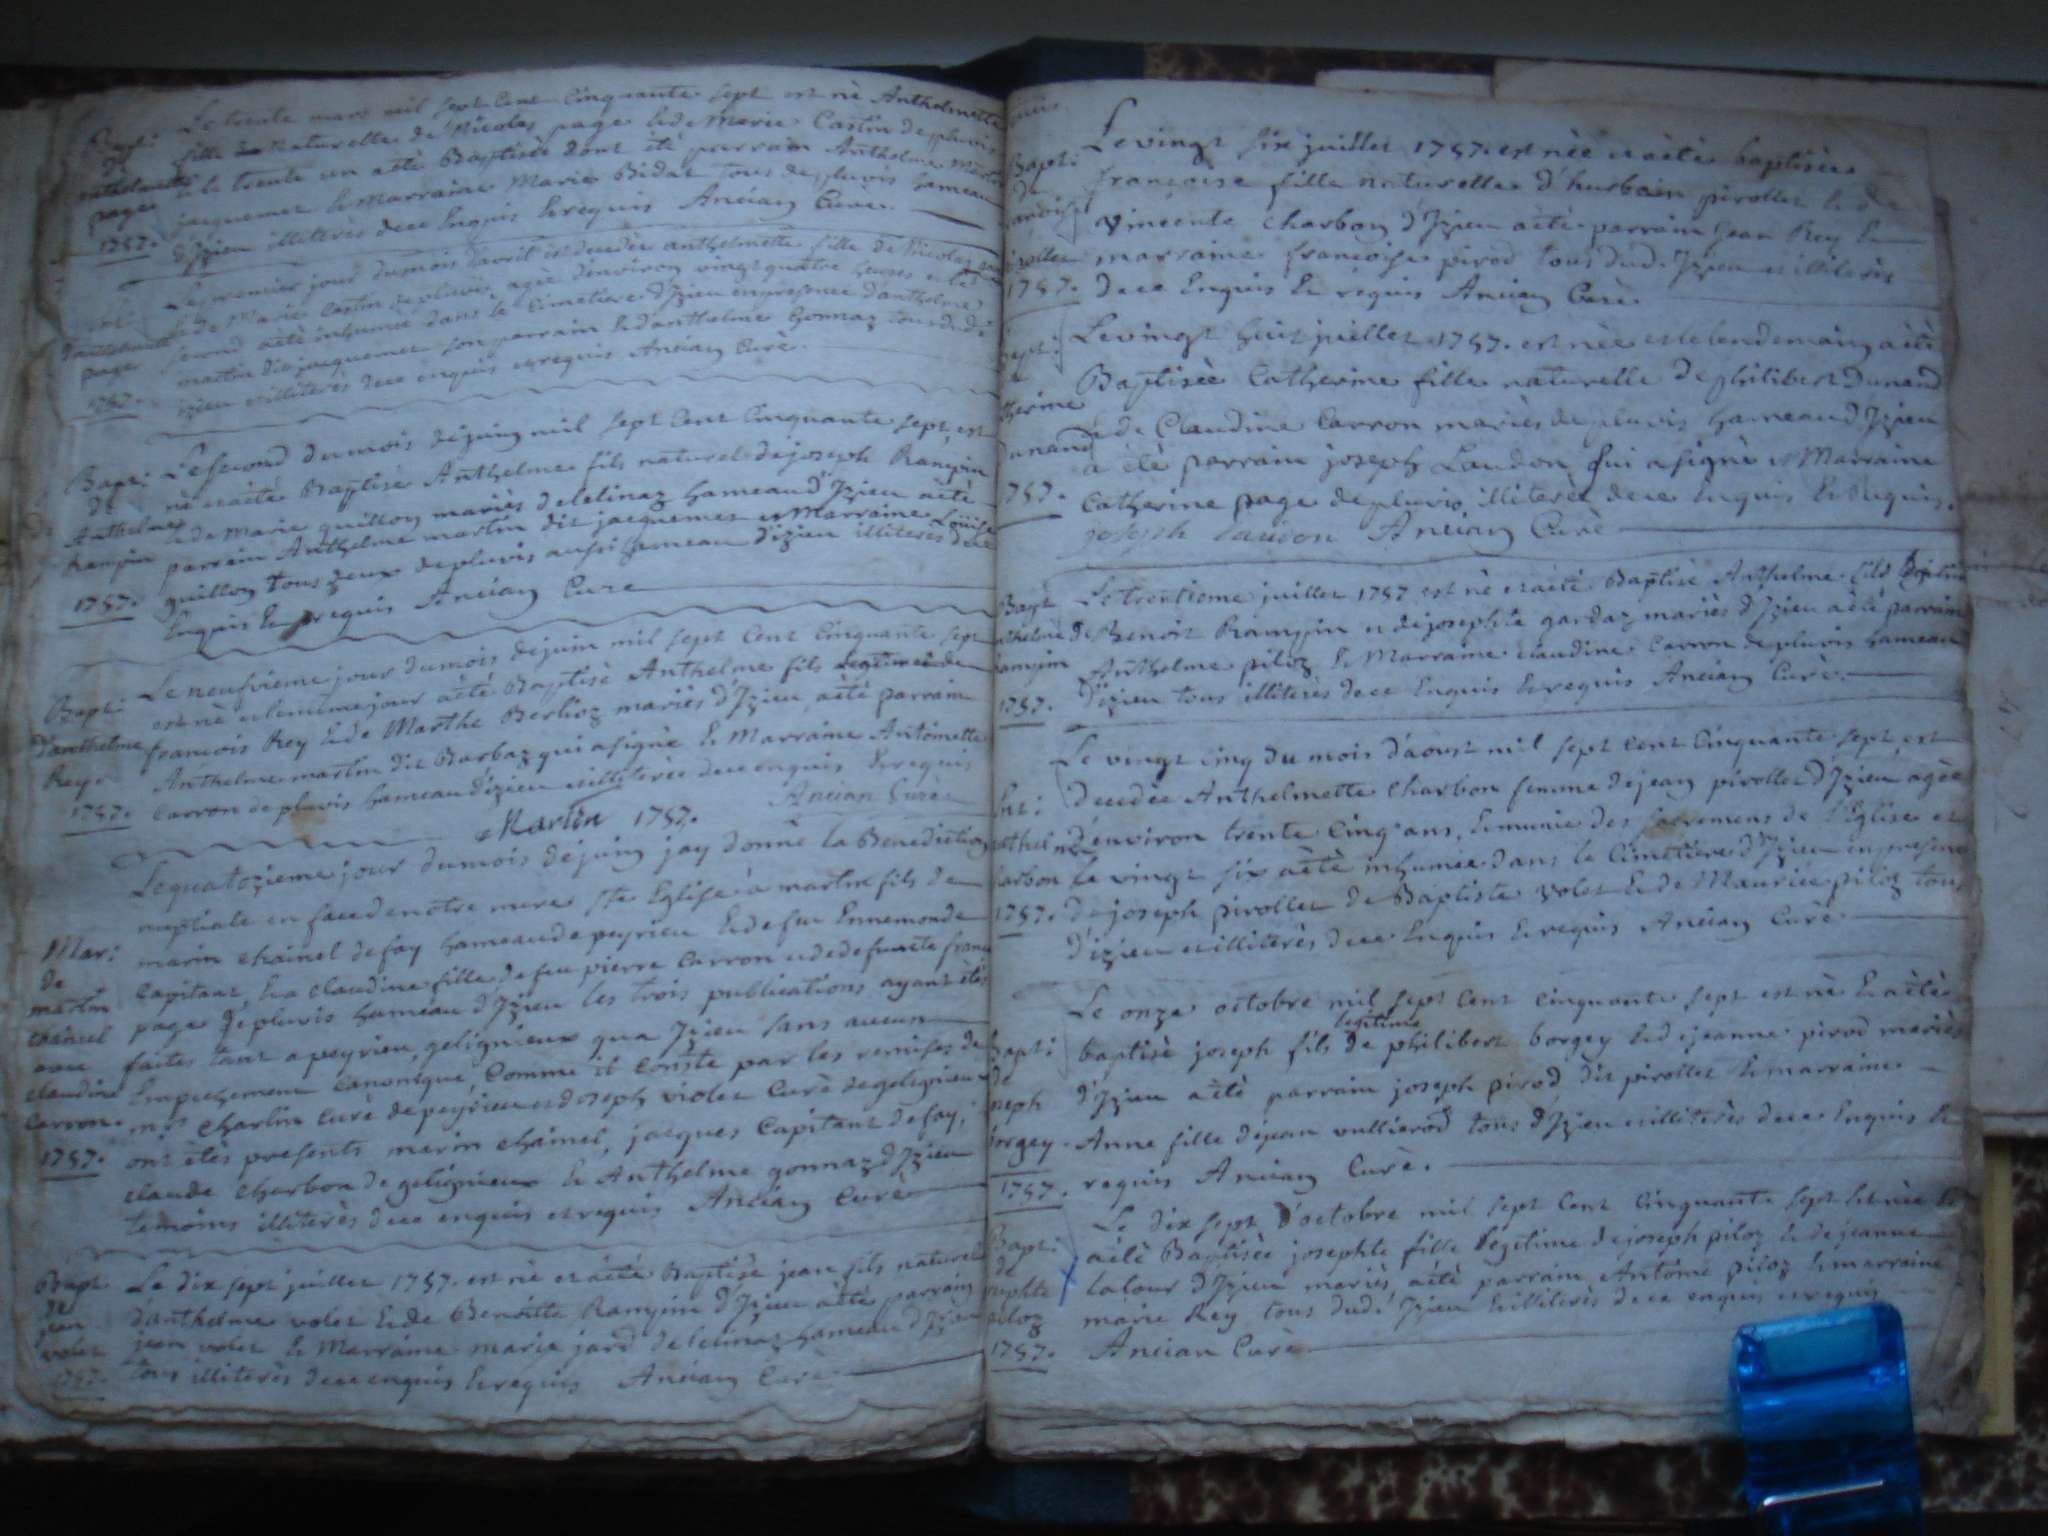 Bapt:
d'
anthelmette
page
1757.
Le trente mars mil sept Cent Cinquante sept est nè Anthelmette
fille naturelle de Nicolas page & de Marie Castin de pluvis
& le trente un aètè Baptiseè dont ètè parrain Anthelme Martin
jacquemet & Marraine Marie Bidat tous de pluvis hameau
d'Izieu illiterès dece Enquis & requis Ancian Curè.
d'anthelmette
page
1757.
Le premier jour dumois davril est decedèe anthelmette fille de Nicolas page
& de Marie Castin de pluvis agèe denviron vingt quatre heures et le
second aètè inhumèe dans le Cimetiere d'Izieu en presence d'anthelme
martin dit jacquemet son parrain & d'anthelme Gonnaz tous dudit
izieu illiterès dece enquis & requis Ancian Curè.
Bapt:
de
Anthelme
Rampin
1757.
Le second dumois dejuin mil sept Cent Cinquante sept, est
nè et aètè Baptisè Anthelme fils naturel dejoseph Rampin
& de Marie guillon mariès delelinaz hameau d'Izieu aètè
parrain Anthelme martin dit jacquemet et Marraine Loüise
guillon tous deux depluvis aussi hameau d'izieu illiterès dece
Enquis & requis Ancian Cure
Bapt:
d'anthelme
Rey.
1757.
Le neufvieme jour dumois dejuin mil sept Cent Cinquante sept
est nè et lememe jour aètè Baptisè Anthelme fils legitime de
francois Rey & de Marthe Berlioz mariès d'Izieu, aètè parrain
Anthelme martin dit Barbaz qui a signè & Marraine Antoinette
Carron de pluvis hameau d'izieu illiterès dece enquis & requis
Martin 1757. Ancian Curè
Mar:
de
martin
chainel
avec
claudine
Carron.
1757.
Le quatozieme jour dumois dejuin jay donnè la Benediction
nuptiale en face denotre mere Ste Eglise à martin fils de
marin chainel defay hameau de peyrieu & de feu Ennemonde
Capitant, & a claudine fille de feu pierre Carron et de defunte france
page de pluvis hameau d'Izieu les trois publications ayant ètès
faites tant a peyrieu, gelignieux qua Izieu sans aucun
Empechement canonique, Comme il conste par les remises de
mrs charlin curè de peyrieu et Joseph violet Curè de gelignieux
ont ètès presents marin chainel, jacques Capitant de fay,
claude charbon de gelignieux & Anthelme gonnaz d'Izieu
temoins illiterès dece enquis et requis Ancian Curè
Bapt
de
jean
volet
1757.
Le dix sept juillet 1757. est nè et aètè Baptisè jean fils naturel
d'anthelme volet & de Benoitte Rampin d'Izieu aètè parrain
jean volet & Marraine marie jard delelinaz hameau d'Izieu
tous illiterès dece enquis & requis Ancian Curè
Bapt:
de
francoise
pirollet
1757.
Le vingt six juillet 1757. est nèe et aètè baptisèe
francoise fille naturelle d'hurbain pirollet & de
Vincente charbon d'Izieu aètè parrain Jean Rey &
marraine francoise pirod tous dud. Izieu et illiterès
dece Enquis & requis Ancian Curè.
Bapt:
Catherine
Dunand
1757.
Le vingt huit juillet 1757. est nèe et le lendemain aètè
Baptisèe Catherine fille naturelle de philibert Dunand
& de Claudine Carron mariès depluvis hameau d'Izieu
a ètè parrain joseph Laudon qui a signè et Marraine
Catherine page de pluvis illiterèe dece Enquis & Requis.
joseph laudon Ancian Curè
Bapt
Anthelme
Rampin
1757.
Le trentieme juillet 1757 est nè et aètè Baptisè Anthelme fils
de Benoit Rampin et dejosephte gardaz mariès d'Izieu aètè parrain
Anthelme piloz & Marraine claudine Carron de pluvis hameau
d'izieu tous illiterès dece Enquis & requis Ancian Curè.
Anthelme
Charbon
1757.
Le vingt cinq du mois d'aoust mil sept cent Cinquante sept est
decedèe Anthelmette Charbon femme de jean pirollet d'Izieu agèe
d'environ trente Cinq ans, & munie des sacremens de l'Eglise et
le vingt six aètè inhumèe dans le Cimetière d'Izieu en presence
de joseph pirollet de Baptiste volet & de Maurice piloz tous
d'izieu et illiterès dece Enquis & requis Ancian Curè
Bapt:
de
joseph
borgey.
1757.
Le onze octobre mil sept Cent cinquante sept est nè & aètè
baptisè joseph fils legitime de philibert borgey & de jeanne pirod mariès
d'Izieu aètè parrain joseph pirod dit pirollet & marraine
Anne fille dejean vullierod tous d'Izieu et illiterès dece Enquis &
requis Ancian Curè.
Bapt:
de
josephte
piloz
1757.
Le dix sept d'octobre mil sept Cent Cinquante sept est nèe &
aètè Baptisèe josephte fille legitime de joseph piloz & de jeanne
latour d'Izieu mariès, aètè parrain Antoine piloz & marraine
marie Rey tous dud. Izieu & illiterès dece enquis et requis
Ancian Curè